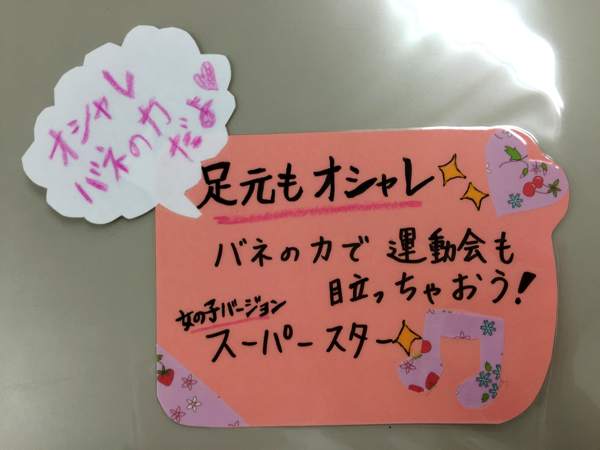 オシャレ
バネの力
だよ♡
足元もオシャレ
バネの力で 運動会も
目立っちゃおう!
女の子バージョン
スーパースター